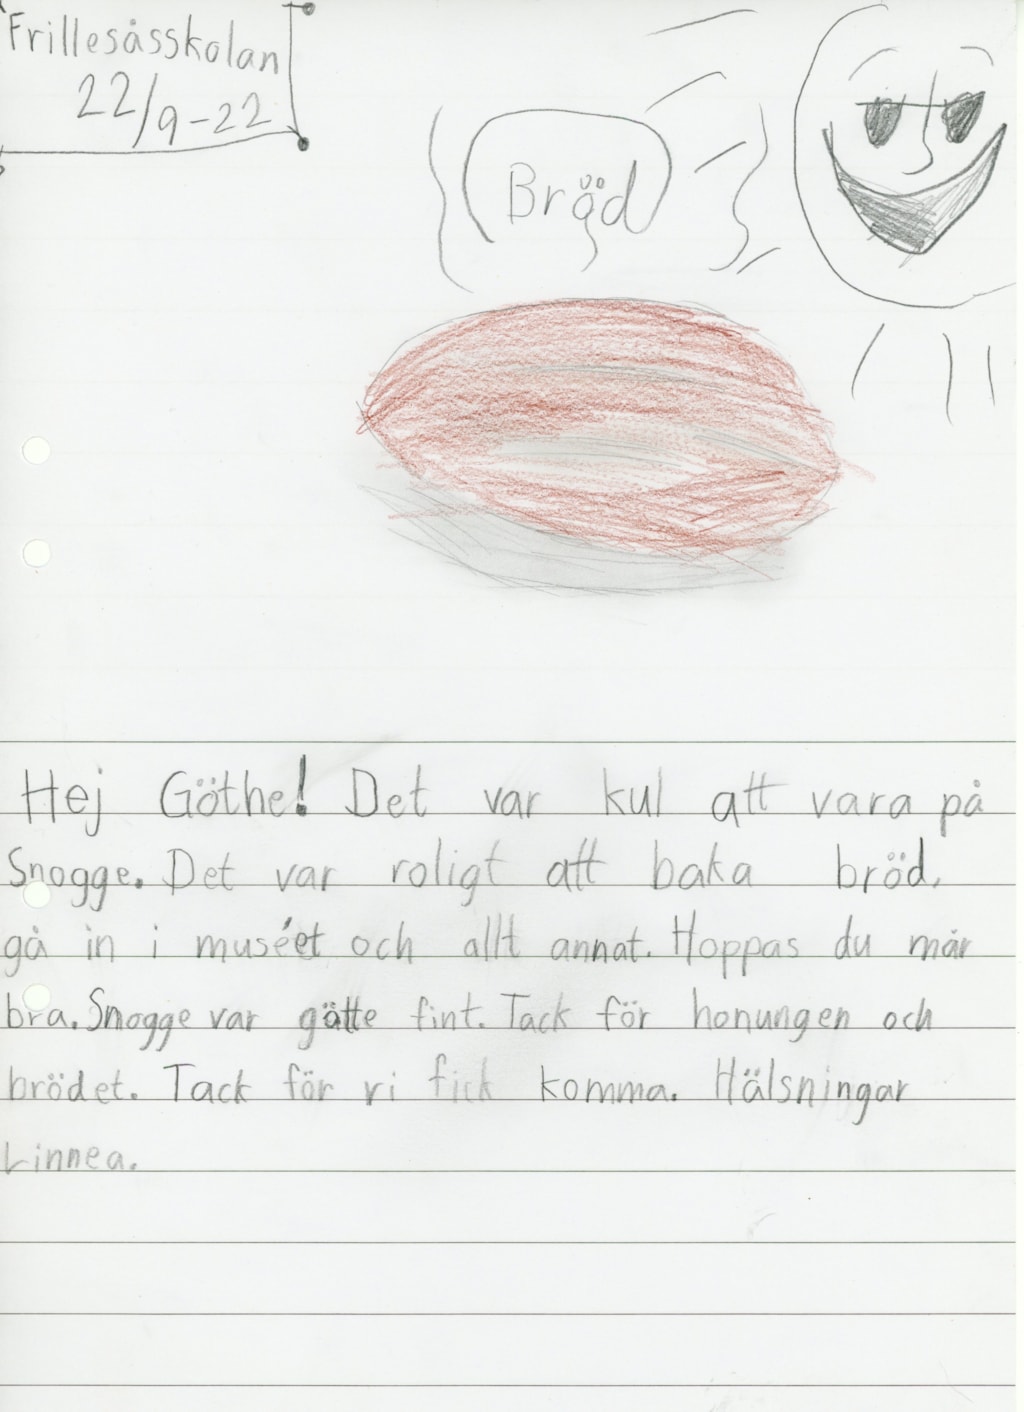 Frillesåsskolan
22/9-22
Bröd
Hej Göthe! Det var kul att vara på
Snogge. Det var roligt att baka bröd,
gå in i muséet och allt annat. Hoppas du mår
bra. Snogge var götte fint. Tack för honungen och
brödet. Tack för vi fick komma. Hälsningar
Linnea.